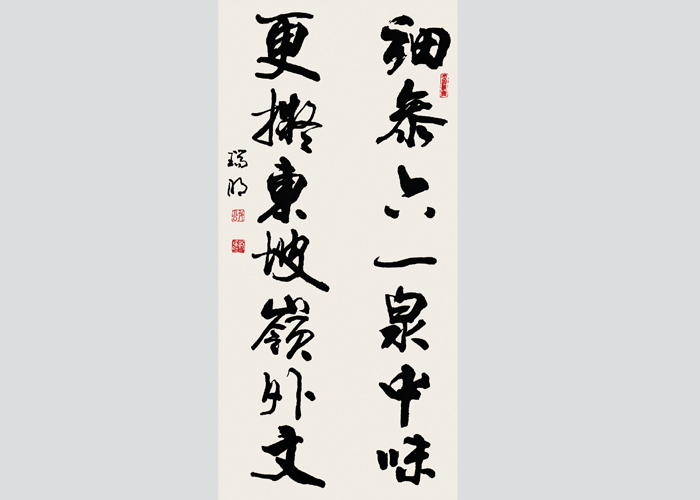 細參六一泉中味
更擬東坡嶺外文
瑞明